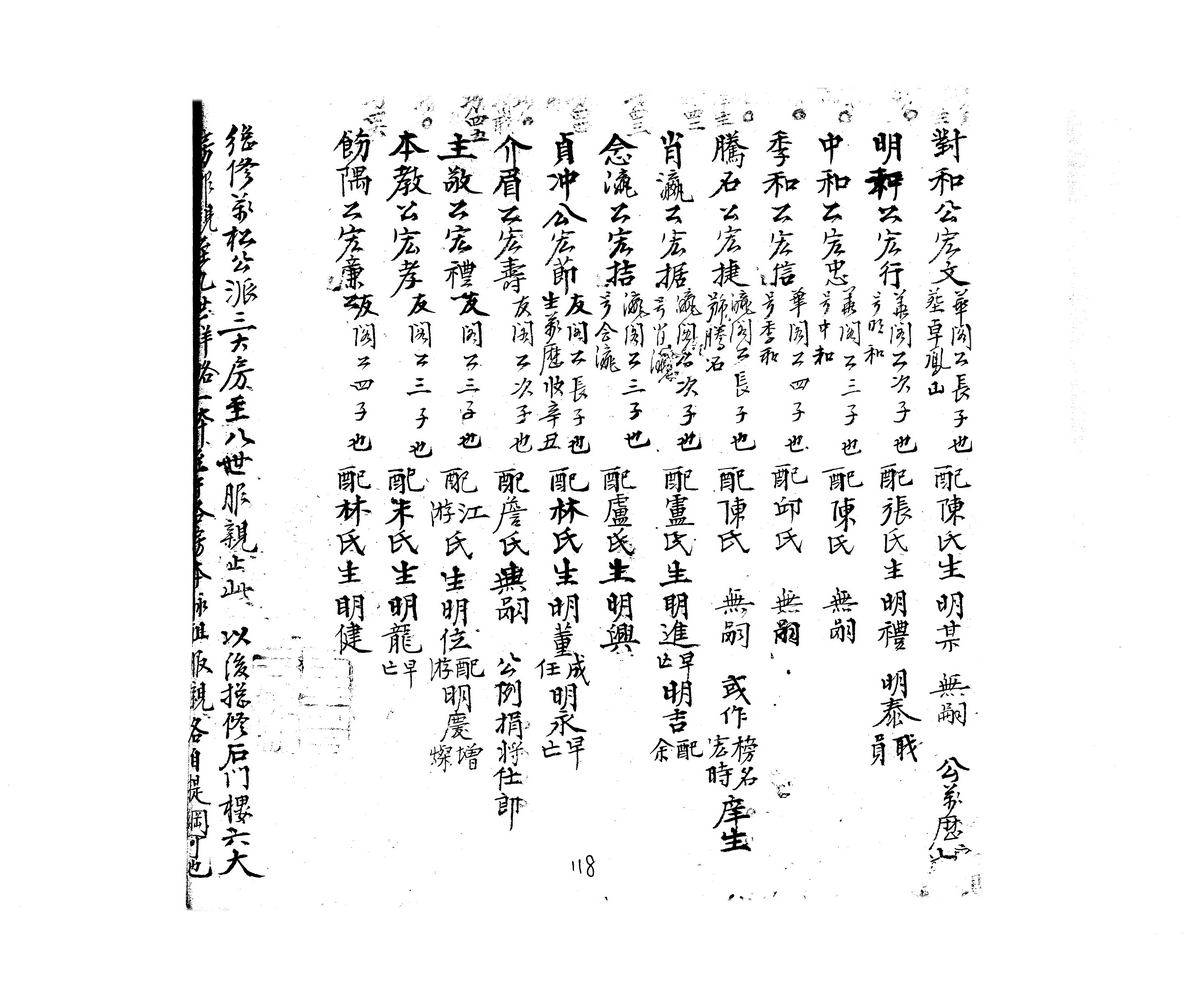 對和公宏文 華閣公長子也 葬卓鳳山 配陳氏生明某 無嗣 公萬歷
明和公宏行 華閣公次子也 号明和 配張氏生明禮 明泰 戢員
中和公宏忠 華閣公三子也 号中和 配陳氏 無嗣
季和公宏信 華閣公四子也 号季和 配邱氏 無嗣
騰石公宏捷 瀛閣公長子也 號騰石 配陳氏 無嗣 或作宏時 榜名 庠生
肖瀛公宏据 瀛閣公次子也 号肖瀛 配盧氏生明進 早亡 明吉 配余
念瀛公宏拮 瀛閣公三子也 号念瀛 配盧氏生明興
貞冲公宏節 友閣公長子也 生萬歷 辛丑 配林氏生明董 成任 明永 早亡
介眉公宏壽 友閣公次子也 配詹氏無嗣 公例捐將仕郎
主敬公宏禮 友閣公三子也 配江游氏生明位 配游 明慶 增燦
本教公宏孝 友閣公三子也 配朱氏生明龍 早亡
飭隅公宏廉 友閣公四子也 配林氏生明健
継修萬松公派三大房至八世服親止此 以後採修石门樓六大
房服親至九世詳略 本 各房本 祖服親各自提綱可也
118